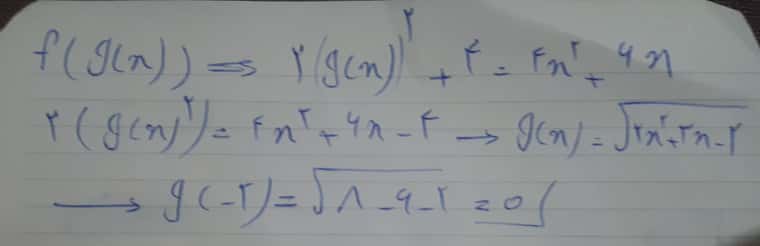 f(g(x)) ⇒ ۲(g(x))^۲ + ۴ = ۴x^۲ + ۶x
۲(g(x)^۲) = ۴x^۲ + ۶x - ۴ → g(x) = √(۲x^۲ + ۳x - ۲)
→ g(-۲) = √(۸ - ۶ - ۲) = ۰